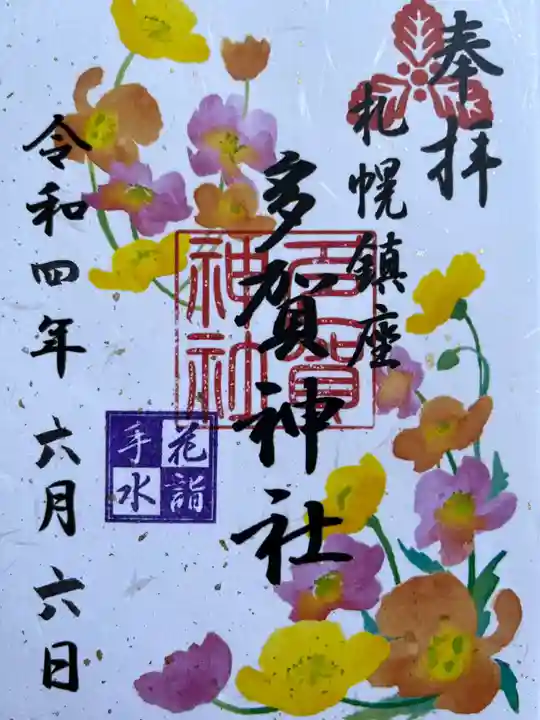 奉拝
札幌鎮座
多賀神社
多賀神社
花詣
手水
令和四年六月六日